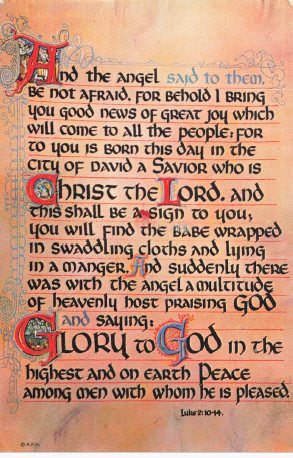 And the angel said to them,
Be not afraid, for behold I bring
you good news of great joy which
will come to all the people; for
to you is born this day in the
city of David a Savior who is
Christ the Lord. and
this shall be a sign to you;
you will find the babe wrapped
in swaddling cloths and lying
in a manger. And suddenly there
was with the angel a multitude
of heavenly host praising GOD
and saying:
GLORY to GOD in the
highest and on earth Peace
among men with whom he is pleased.
Luke 2:10-14.